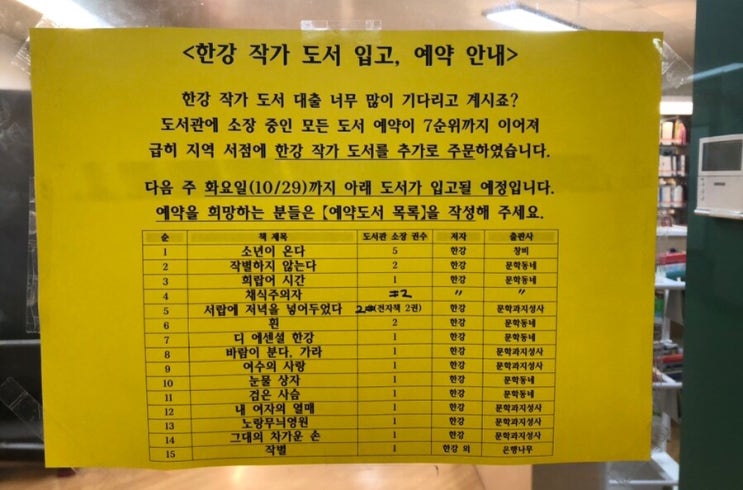 <한강 작가 도서 입고, 예약 안내>
한강 작가 도서 대출 너무 많이 기다리고 계시죠?
도서관에 소장 중인 모든 도서 예약이 7순위까지 이어져
급히 지역 서점에 한강 작가 도서를 추가로 주문하였습니다.
다음 주 화요일(10/29)까지 아래 도서가 입고될 예정입니다.
예약을 희망하는 분들은 【예약도서 목록】을 작성해 주세요.
순 책 제목 도서관 소장 권수 저자 출판사
1 소년이 온다 5 한강 창비
2 작별하지 않는다 2 한강 문학동네
3 희랍어 시간 1 한강 문학동네
4 채식주의자 2 〃 〃
5 서랍에 저녁을 넣어두었다 2(전자책 2권) 한강 문학과지성사
6 흰 2 한강 문학동네
7 디 에센셜 한강 1 한강 문학동네
8 바람이 분다, 가라 1 한강 문학과지성사
9 여수의 사랑 1 한강 문학과지성사
10 눈물 상자 1 한강 문학동네
11 검은 사슴 1 한강 문학동네
12 내 여자의 열매 1 한강 문학과지성사
13 노랑무늬영원 1 한강 문학과지성사
14 그대의 차가운 손 1 한강 문학과지성사
15 작별 1 한강 외 은행나무